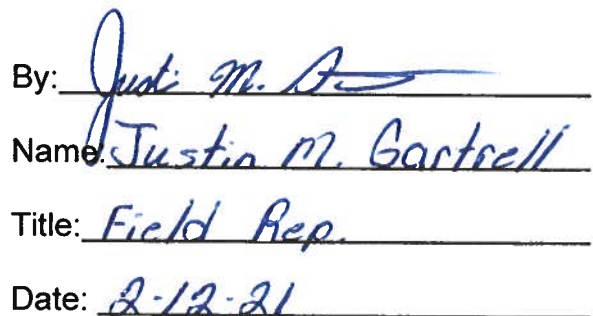 By: Justi M.
Name: Justin M. Gartrell
Title: Field Rep.
Date: 2-12-21